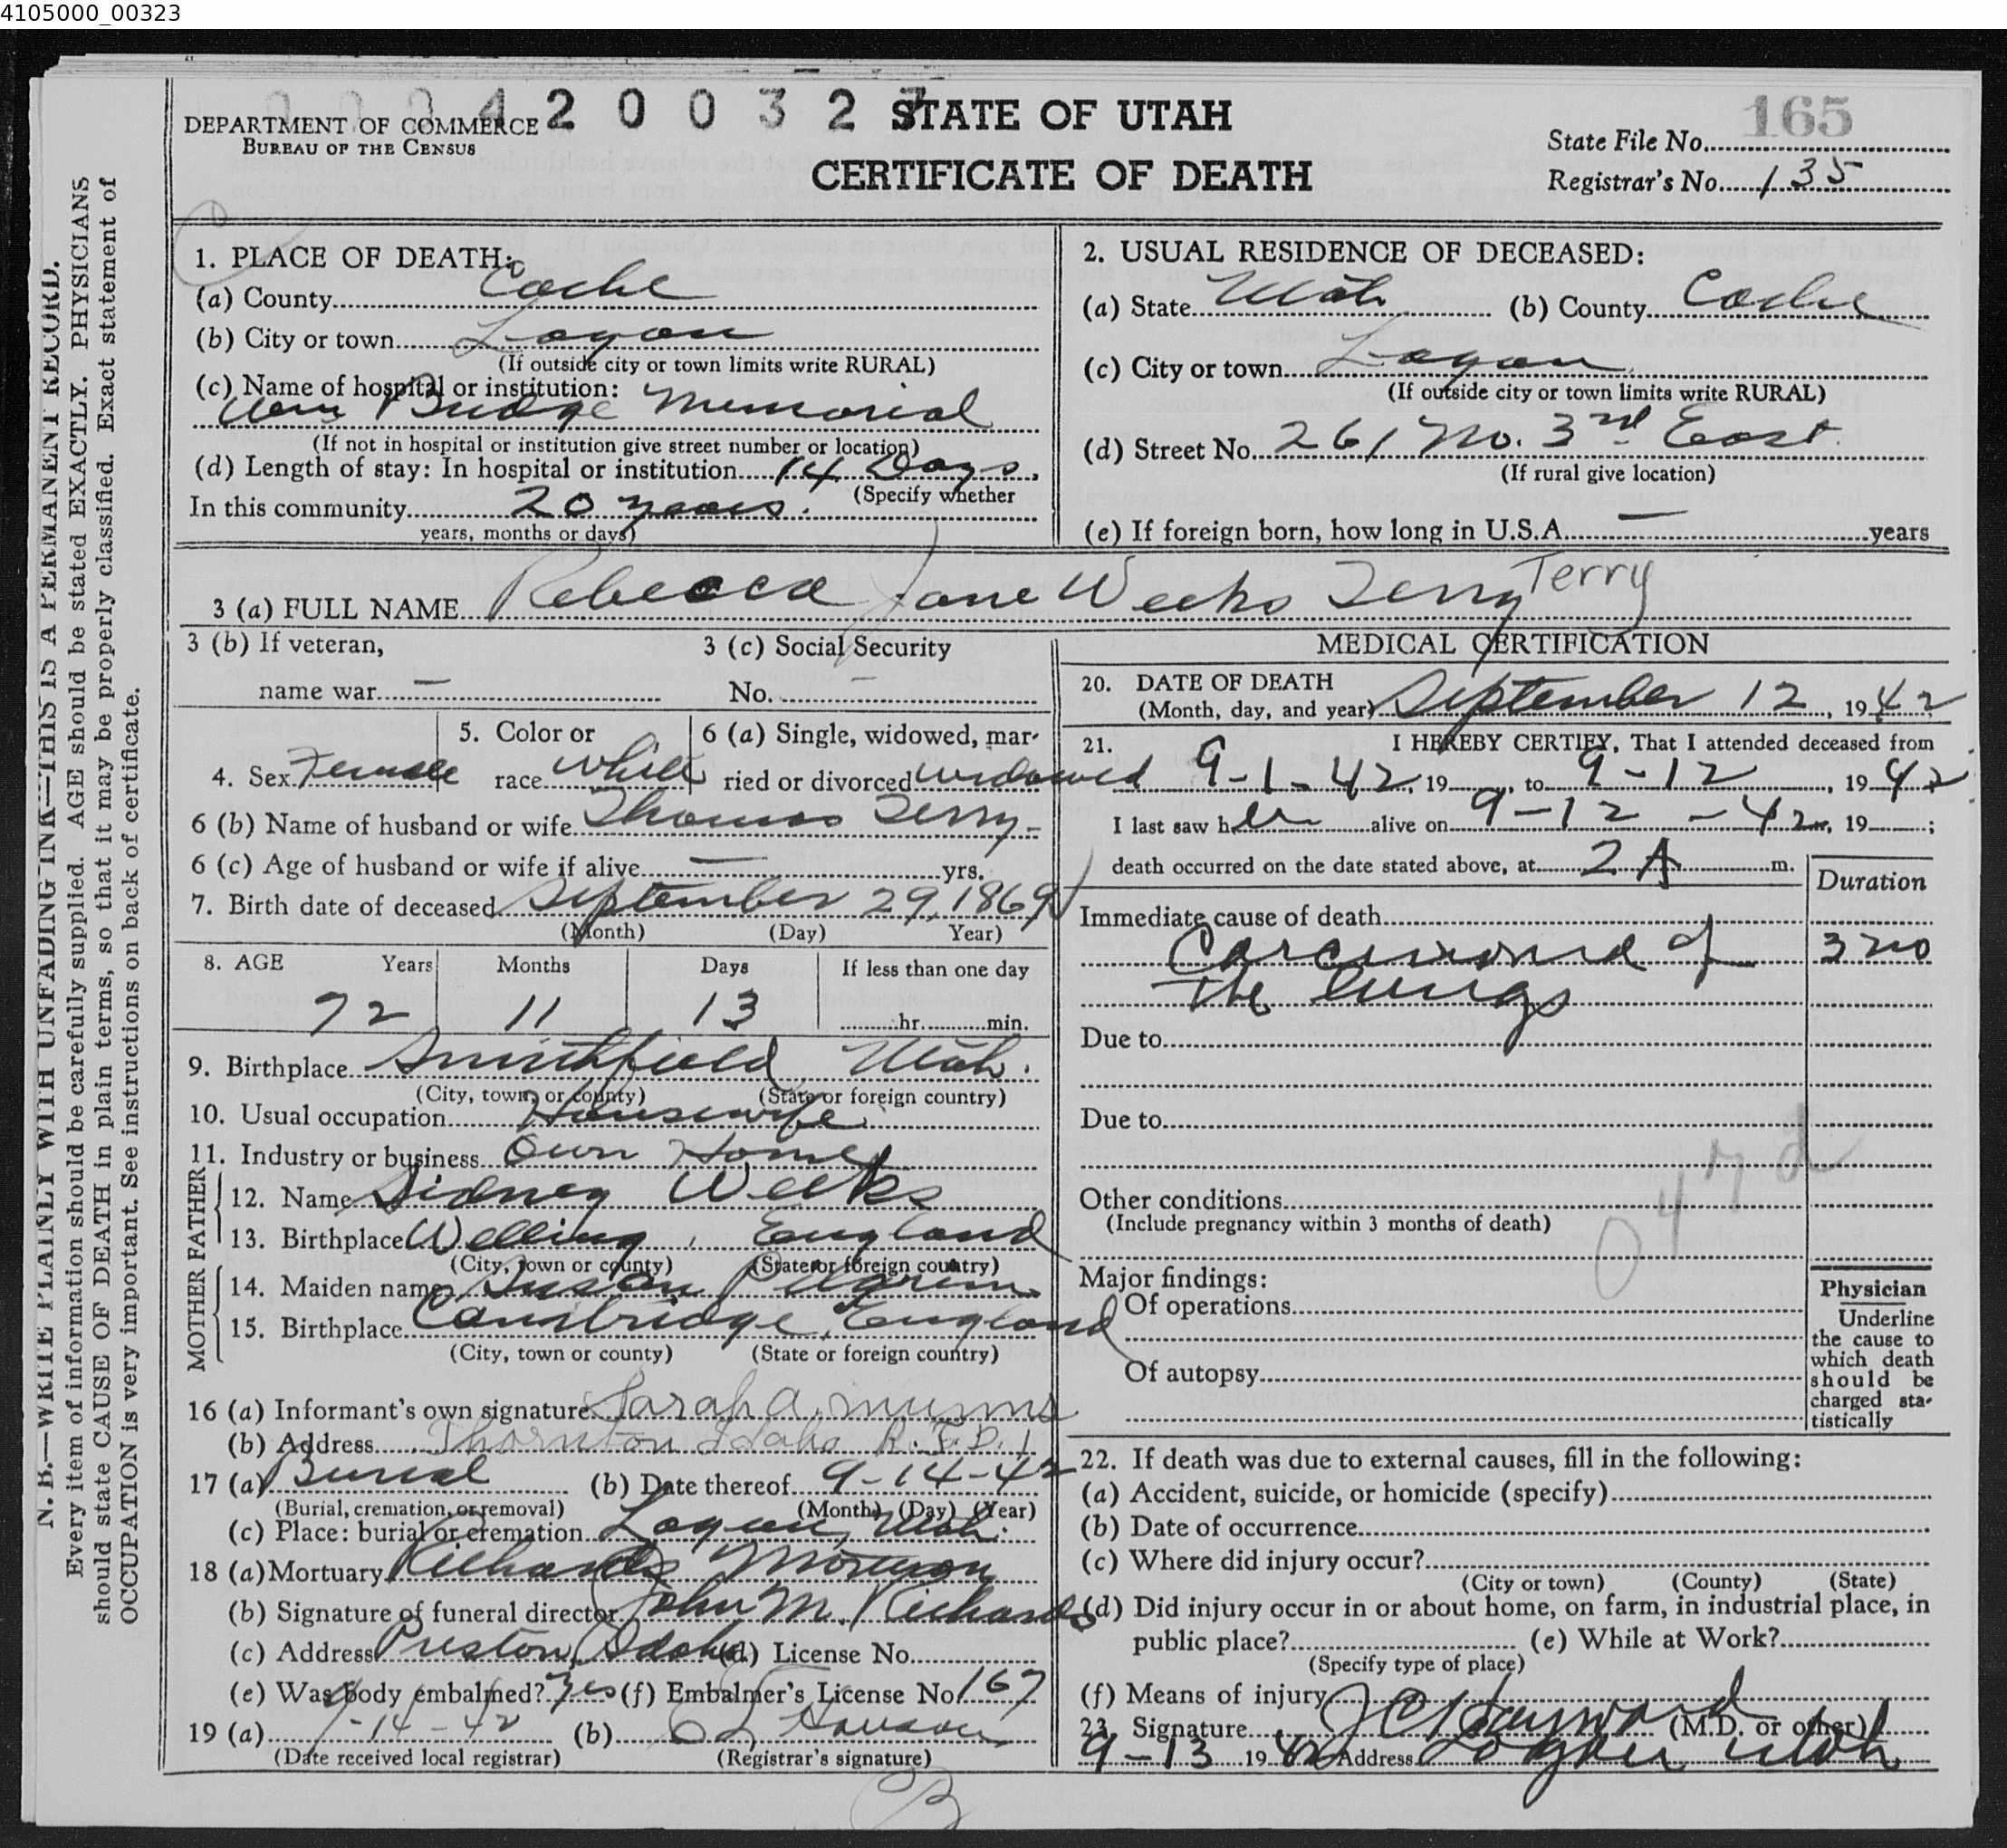 4105000_00323
0 0 0 4 2 0 0 3 2 7
STATE OF UTAH
CERTIFICATE OF DEATH
DEPARTMENT OF COMMERCE
BUREAU OF THE CENSUS
State File No. 165
Registrar's No. 135
N. B.—WRITE PLAINLY WITH UNFADING INK—THIS IS A PERMANENT RECORD.
Every item of information should be carefully supplied. AGE should be stated EXACTLY. PHYSICIANS
should state CAUSE OF DEATH in plain terms, so that it may be properly classified. Exact statement of
OCCUPATION is very important. See instructions on back of certificate.
1. PLACE OF DEATH:
(a) County Cache
(b) City or town Logan
(If outside city or town limits write RURAL)
(c) Name of hospital or institution:
Wm Budge Memorial
(If not in hospital or institution give street number or location)
(d) Length of stay: In hospital or institution 14 Days.
(Specify whether
In this community 20 years.
years, months or days)
2. USUAL RESIDENCE OF DECEASED:
(a) State Utah (b) County Cache
(c) City or town Logan
(If outside city or town limits write RURAL)
(d) Street No. 261 No. 3rd East
(If rural give location)
(e) If foreign born, how long in U.S.A. — years
3 (a) FULL NAME Rebecca Jane Weeks Terry Terry
3 (b) If veteran, 3 (c) Social Security
name war — No. —
4. Sex Female 5. Color or race White 6 (a) Single, widowed, married or divorced widowed
6 (b) Name of husband or wife Thomas Terry
6 (c) Age of husband or wife if alive — yrs.
7. Birth date of deceased September 29, 1869
(Month) (Day) Year)
8. AGE Years Months Days If less than one day
72 11 13 hr. min.
9. Birthplace Smithfield Utah.
(City, town, or county) (State or foreign country)
10. Usual occupation Housewife
11. Industry or business Own Home
FATHER
12. Name Sidney Weeks
13. Birthplace Welling, England
(City, town or county) (State or foreign country)
MOTHER
14. Maiden name Susan Pilgrim
15. Birthplace Cambridge, England
(City, town or county) (State or foreign country)
16 (a) Informant's own signature Sarah A. Munns
(b) Address Thornton Idaho R.F.D. 1
17 (a) Burial (b) Date thereof 9-14-42
(Burial, cremation, or removal) (Month) (Day) (Year)
(c) Place: burial or cremation Logan, Utah.
18 (a) Mortuary Richards
(b) Signature of funeral director John M. Richards
(c) Address Preston, Idaho (d) License No.
(e) Was body embalmed? Yes (f) Embalmer's License No. 167
19 (a) 9-14-42 (b) Hanson
(Date received local registrar) (Registrar's signature)
MEDICAL CERTIFICATION
20. DATE OF DEATH
(Month, day, and year) September 12, 1942
21. I HEREBY CERTIFY, That I attended deceased from
9-1-42, 19 , to 9-12, 1942
I last saw her alive on 9-12-42, 19 ;
death occurred on the date stated above, at 2 A m.
Duration
Immediate cause of death
Carcinoma of 3 mo
The lungs
Due to
Due to
Other conditions
(Include pregnancy within 3 months of death)
047d
Major findings:
Of operations
Of autopsy
Physician
Underline
the cause to
which death
should be
charged sta-
tistically
22. If death was due to external causes, fill in the following:
(a) Accident, suicide, or homicide (specify)
(b) Date of occurrence
(c) Where did injury occur?
(City or town) (County) (State)
(d) Did injury occur in or about home, on farm, in industrial place, in
public place? (e) While at Work?
(Specify type of place)
(f) Means of injury
23. Signature J C Hayward (M.D. or other)
9-13 1942 Address Logan Utah